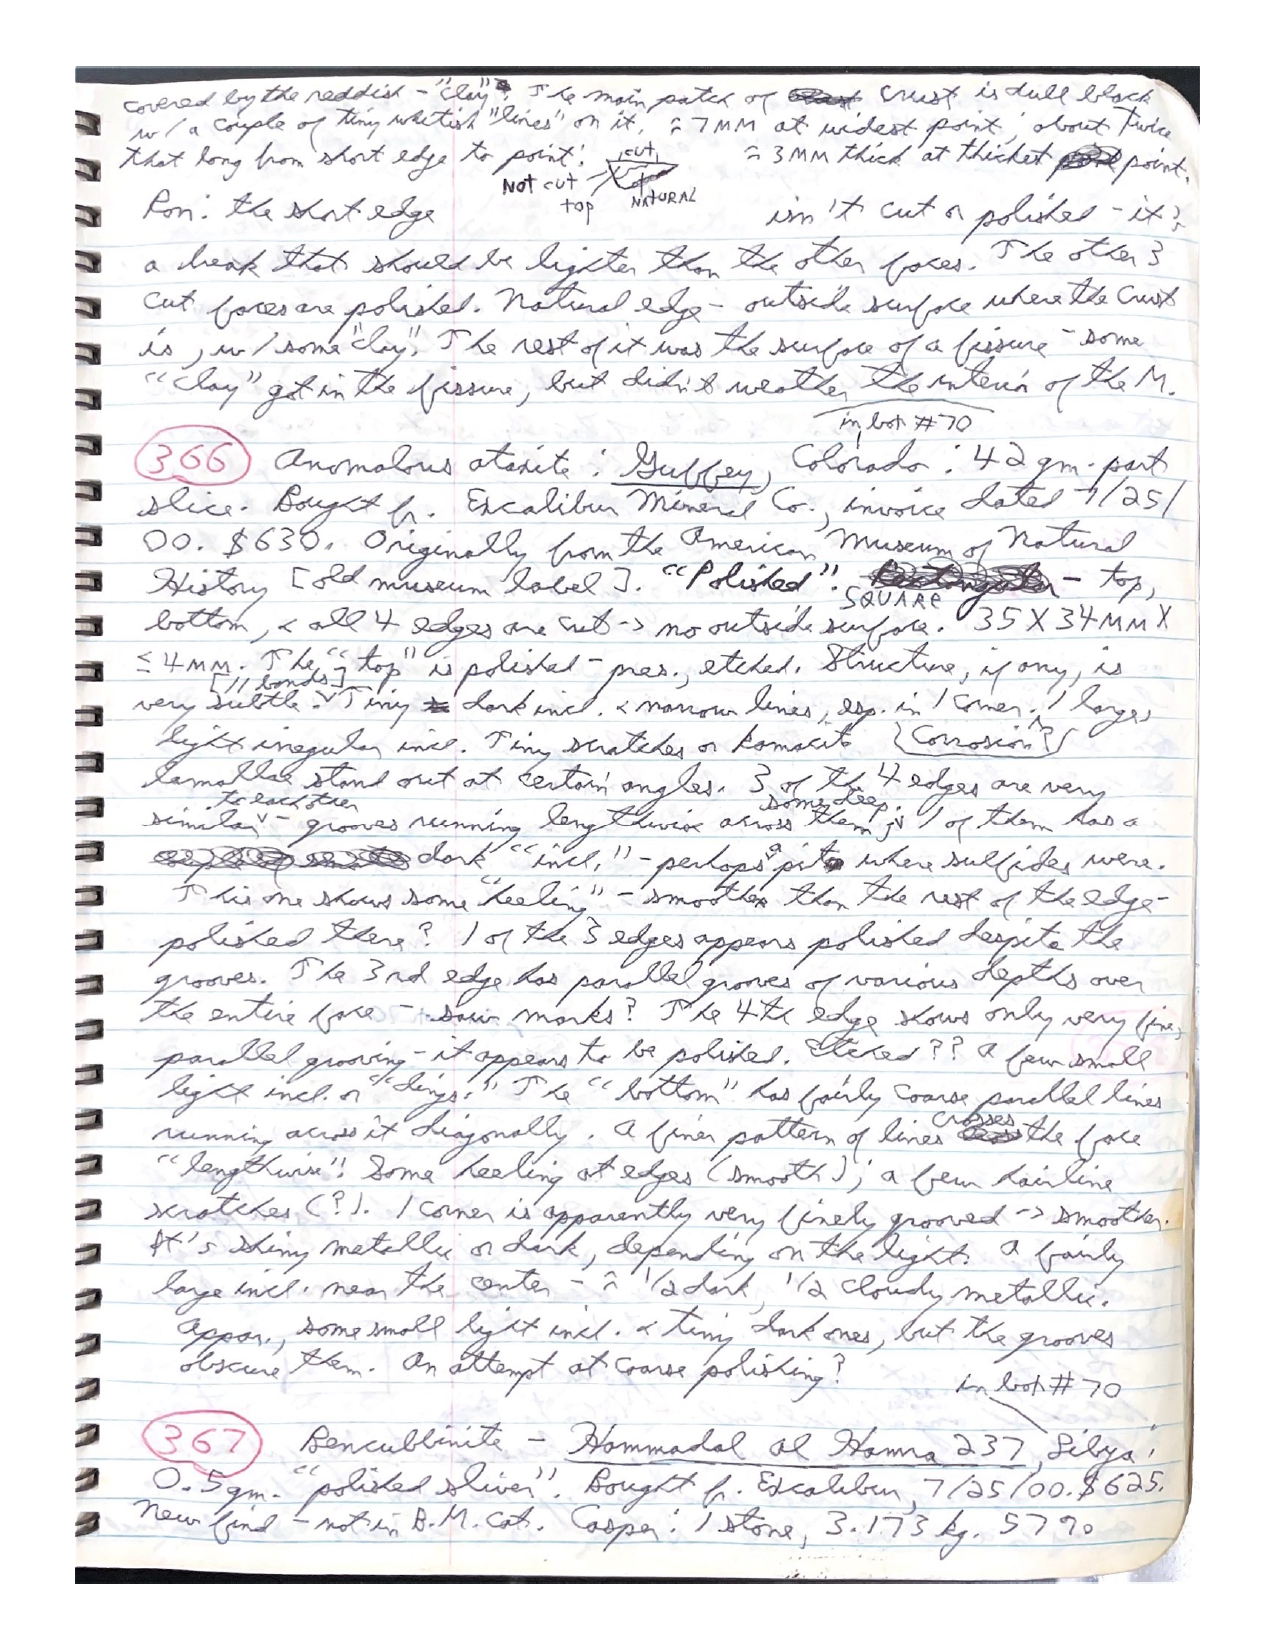 covered by the reddish - "clay". The main patch of crust is dull black
w/ a couple of tiny whitish "lines" on it. ≈ 7MM at widest point; about twice
that long from short edge to point. ≈ 3MM thick at thickest point.
cut
Not cut
top
NATURAL
Ron: the short edge isn't cut or polished - it's
a break that should be lighter than the other faces. The other 3
cut faces are polished. Natural edge - outside surface where the crust
is, w/ some "clay". The rest of it was the surface of a fissure - some
"clay" got in the fissure, but didn't weather the interior of the M.
in bot. #70
366 Anomalous ataxite: Guffey, Colorado: 42 gm. part
slice. Bought fr. Excalibur Mineral Co., invoice dated 7/25/
00. $630. Originally from the American Museum of Natural
History [old museum label]. "Polished". SQUARE - top,
bottom, & all 4 edges are cut -> no outside surface. 35 X 34 MM X
≤ 4MM. The "top" is polished - pres., etched. Structure, if any, is
[// bands]
very subtle. Tiny dark incl. & narrow lines, esp. in 1 corner. 1 large,
light irregular incl. Tiny scratches or kamacite {Corrosion?}
lamallae stand out at certain angles. 3 of the 4 edges are very
to each other some deep.
similar - grooves running lengthwise across them; 1 of them has a
dark "incl." - perhaps a pit where sulfides were.
This one shows some "heeling" - smoother than the rest of the edge -
polished there? 1 of the 3 edges appears polished despite the
grooves. The 3rd edge has parallel grooves of various depths over
the entire face - saw marks? The 4th edge shows only very fine,
parallel grooving - it appears to be polished. Etched?? A few small
light incl. or "dings." The "bottom" has fairly coarse parallel lines
running across it diagonally. A finer pattern of lines crosses the face
"lengthwise". Some heeling at edges (smooth); a few hairline
scratches (?). 1 corner is apparently very finely grooved -> smoother.
It's shiny metallic or dark, depending on the light. A fairly
large incl. near the center - ≈ 1/2 dark, 1/2 cloudy metallic.
Appar., some small light incl. & tiny dark ones, but the grooves
obscure them. An attempt at coarse polishing?
in bot. #70
367 Bencubbinite - Hammadal al Hamra 237, Libya:
0.5gm. "polished sliver". Bought fr. Excalibur, 7/25/00. $625.
New find - not in B.M. Cat. Casper: 1 stone, 3.173 kg. 57%